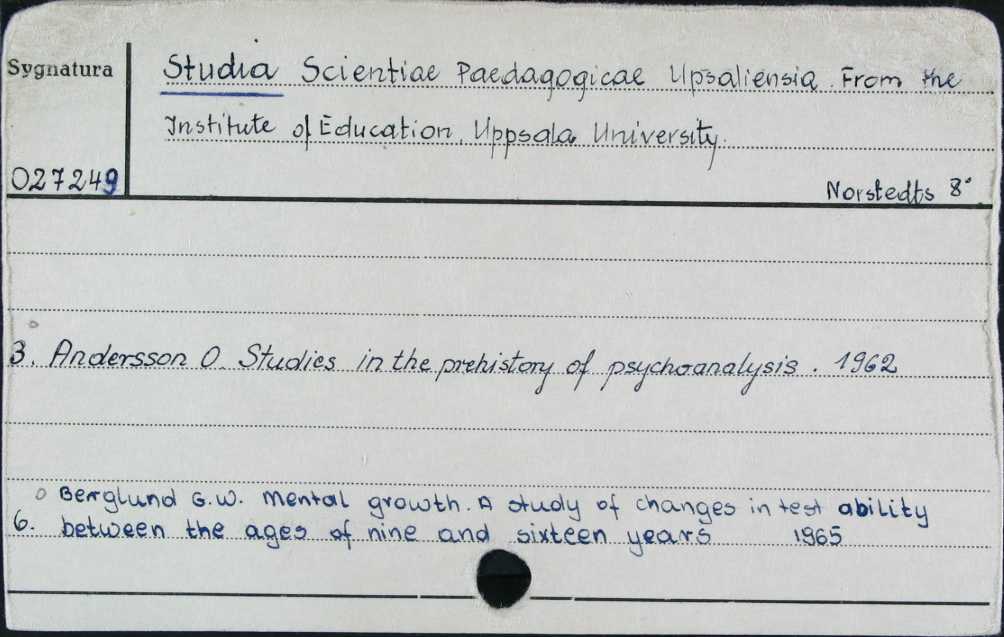 Sygnatura
Studia Scientiae Paedagogicae Upsaliensia. From the
Institute of Education, Uppsala University.
027249
Norstedts 8°
3. Andersson O. Studies in the prehistory of psychoanalysis. 1962
Berglund G.W. Mental growth. A study of changes in test ability
6. between the ages of nine and sixteen years 1965